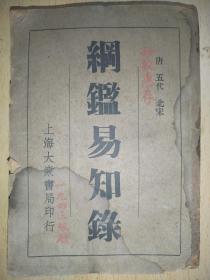 唐 五代 北宋
綱鑑易知錄
上海大衆書局印行